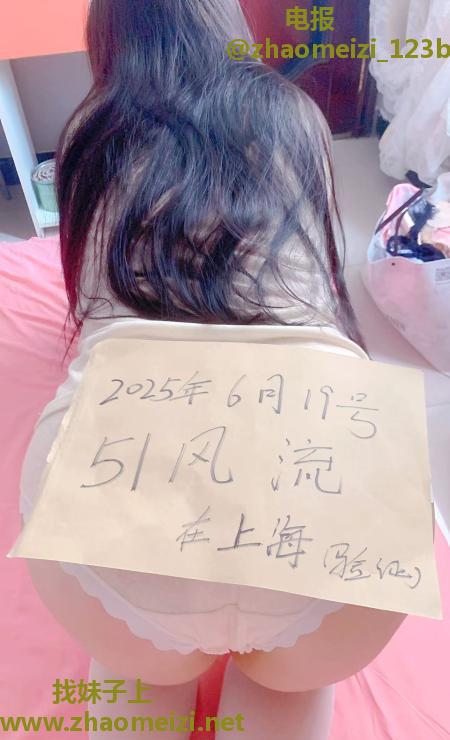 电报
@zhaomeizi_123b
2025年6月19号
51风流
在上海(验证)
找妹子上
www.zhaomeizi.net